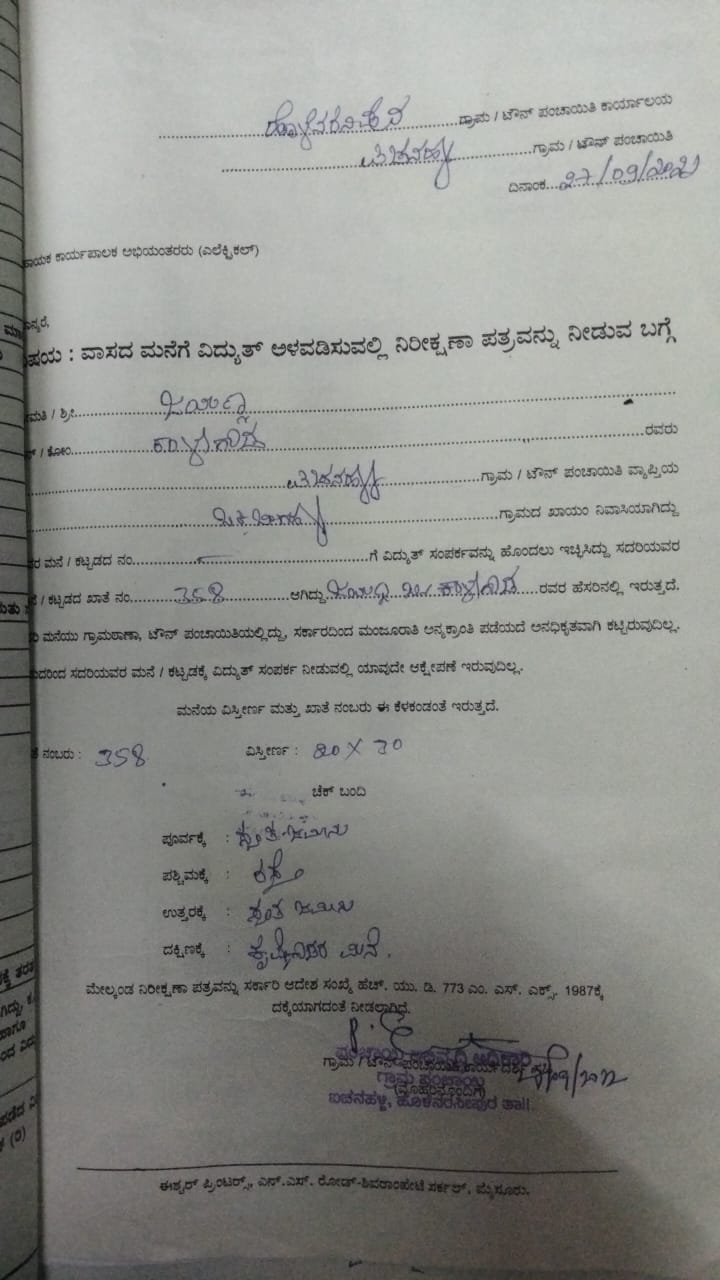 ಗ್ರಾಮ / ಟೌನ್ ಪಂಚಾಯಿತಿ ಕಾರ್ಯಾಲಯ
ಗ್ರಾಮ / ಟೌನ್ ಪಂಚಾಯಿತಿ
ದಿನಾಂಕ...27/09/2021
ಕಾರ್ಯಪಾಲಕ ಅಭಿಯಂತರರು (ಎಲೆಕ್ಟ್ರಿಕಲ್)
: ವಾಸದ ಮನೆಗೆ ವಿದ್ಯುತ್ ಅಳವಡಿಸುವಲ್ಲಿ ನಿರೀಕ್ಷಣಾ ಪತ್ರವನ್ನು ನೀಡುವ ಬಗ್ಗೆ
/ ಶ್ರೀ
/ ಕೋಂ ಕಾಳೇಗೌಡ ರವರು
ಗ್ರಾಮ / ಟೌನ್ ಪಂಚಾಯಿತಿ ವ್ಯಾಪ್ತಿಯ
ಗ್ರಾಮದ ಖಾಯಂ ನಿವಾಸಿಯಾಗಿದ್ದು
ಮನೆ / ಕಟ್ಟಡದ ನಂ. ಗೆ ವಿದ್ಯುತ್ ಸಂಪರ್ಕವನ್ನು ಹೊಂದಲು ಇಚ್ಛಿಸಿದ್ದು ಸದರಿಯವರ
/ ಕಟ್ಟಡದ ಖಾತೆ ನಂ. 358 ಆಗಿದ್ದು ಕಾಳೇಗೌಡ ರವರ ಹೆಸರಿನಲ್ಲಿ ಇರುತ್ತದೆ.
ಮನೆಯು ಗ್ರಾಮಠಾಣಾ, ಟೌನ್ ಪಂಚಾಯಿತಿಯಲ್ಲಿದ್ದು, ಸರ್ಕಾರದಿಂದ ಮಂಜೂರಾತಿ ಅನ್ಯಕ್ರಾಂತಿ ಪಡೆಯದೆ ಅನಧಿಕೃತವಾಗಿ ಕಟ್ಟಿರುವುದಿಲ್ಲ.
ಸದರಿಯವರ ಮನೆ / ಕಟ್ಟಡಕ್ಕೆ ವಿದ್ಯುತ್ ಸಂಪರ್ಕ ನೀಡುವಲ್ಲಿ ಯಾವುದೇ ಆಕ್ಷೇಪಣೆ ಇರುವುದಿಲ್ಲ.
ಮನೆಯ ವಿಸ್ತೀರ್ಣ ಮತ್ತು ಖಾತೆ ನಂಬರು ಈ ಕೆಳಕಂಡಂತೆ ಇರುತ್ತದೆ.
ನಂಬರು : 358 ವಿಸ್ತೀರ್ಣ : 20 X 30
ಚೆಕ್ ಬಂದಿ
ಪೂರ್ವಕ್ಕೆ : ಸ್ವಂತ ಜಮೀನು
ಪಶ್ಚಿಮಕ್ಕೆ : ರಸ್ತೆ
ಉತ್ತರಕ್ಕೆ : ಸ್ವಂತ ಜಮೀನು
ದಕ್ಷಿಣಕ್ಕೆ : ಮನೆ.
ಮೇಲ್ಕಂಡ ನಿರೀಕ್ಷಣಾ ಪತ್ರವನ್ನು ಸರ್ಕಾರಿ ಆದೇಶ ಸಂಖ್ಯೆ ಹೆಚ್. ಯು. ಡಿ. 773 ಎಂ. ಎಸ್. ಎಕ್ಸ್. 1987ಕ್ಕೆ
ದಕ್ಕೆಯಾಗದಂತೆ ನೀಡಲಾಗಿದೆ.
ಪಂಚಾಯ್ತಿ ಅಭಿವೃದ್ಧಿ ಅಧಿಕಾರಿ
ಗ್ರಾಮ / ಟೌನ್ ಪಂಚಾಯಿತಿ
ಗ್ರಾಮ ಪಂಚಾಯ್ತಿ
(ಮೊಹರಿನೊಂದಿಗೆ)
ಐಚನಹಳ್ಳಿ, ಹೊಳೆನರಸೀಪುರ ತಾ||.
ಈಶ್ವರ್ ಪ್ರಿಂಟರ್ಸ್, ಎನ್.ಎಸ್. ರೋಡ್-ಶಿವರಾಂಪೇಟೆ ಸರ್ಕಲ್, ಮೈಸೂರು.